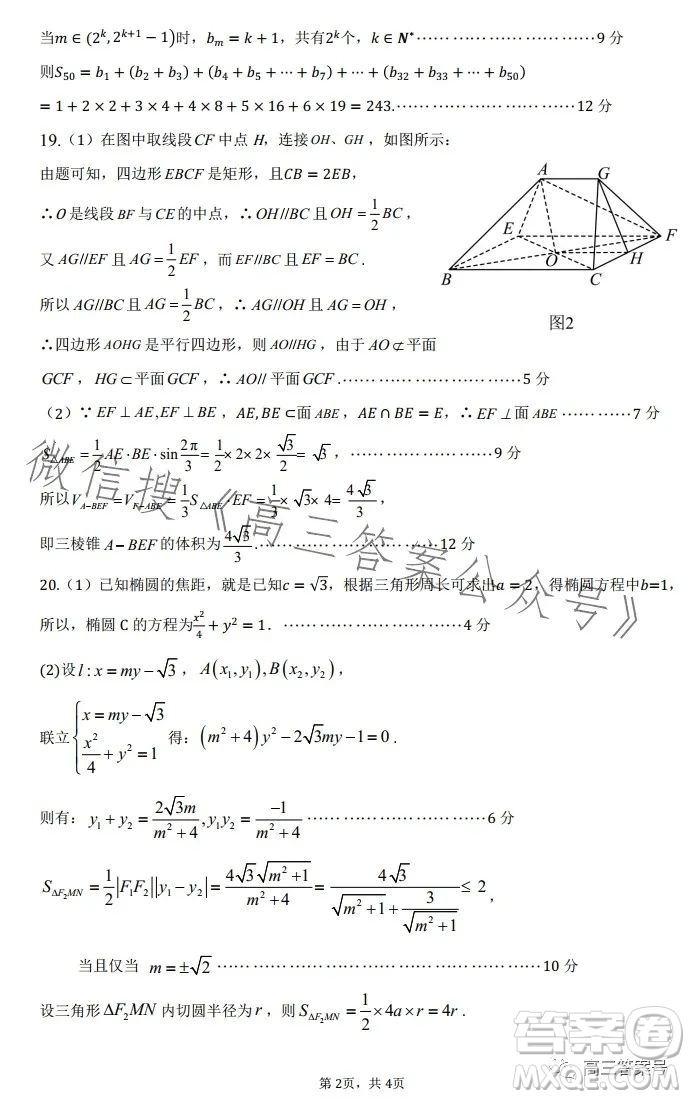 当m∈(2^k, 2^{k+1}−1)时，b_m = k+1，共有2^k个，k∈N*⋯⋯⋯⋯⋯⋯⋯⋯⋯⋯9 分
则S_50 = b_1 + (b_2 + b_3) + (b_4 + b_5 + ⋯ + b_7) + ⋯ + (b_32 + b_33 + ⋯ + b_50)
= 1 + 2×2 + 3×4 + 4×8 + 5×16 + 6×19 = 243.⋯⋯⋯⋯⋯⋯⋯⋯⋯⋯12 分
19.（1）在图中取线段CF中点 H，连接OH、GH，如图所示：
由题可知，四边形EBCF是矩形，且CB=2EB，
∴O是线段BF与CE的中点，∴OH//BC且OH=1/2 BC，
又AG//EF且AG=1/2 EF，而EF//BC且EF=BC.
所以AG//BC且AG=1/2 BC，∴AG//OH且AG=OH，
∴四边形AOHG是平行四边形，则AO//HG，由于AO⊄平面
GCF，HG⊂平面GCF，∴AO//平面GCF.⋯⋯⋯⋯⋯⋯⋯⋯⋯⋯5 分
A
G
E
F
O
H
B
C
图2
（2）∵EF⊥AE,EF⊥BE，AE,BE⊂面ABE，AE∩BE=E，∴EF⊥面ABE⋯⋯⋯⋯7 分
S_△ABE = 1/2 AE·BE·sin 2π/3 = 1/2 × 2 × 2 × √3/2 = √3，⋯⋯⋯⋯⋯⋯⋯⋯⋯⋯9 分
所以V_{A−BEF} = V_{F−ABE} = 1/3 S_△ABE·EF = 1/3 × √3 × 4 = 4√3/3，
即三棱锥A−BEF的体积为4√3/3.⋯⋯⋯⋯⋯⋯⋯⋯⋯⋯12 分
20.（1）已知椭圆的焦距，就是已知c=√3，根据三角形周长可求出a=2，得椭圆方程中b=1，
所以，椭圆 C 的方程为x²/4 + y² = 1．⋯⋯⋯⋯⋯⋯⋯⋯⋯⋯4 分
(2)设l:x=my−√3，A(x_1,y_1),B(x_2,y_2)，
联立{x=my−√3, x²/4 + y² = 1 得：(m²+4)y²−2√3my−1=0.
则有：y_1+y_2 = 2√3m/(m²+4), y_1y_2 = −1/(m²+4) ⋯⋯⋯⋯⋯⋯⋯⋯⋯⋯6 分
S_{ΔF_2MN} = 1/2|F_1F_2||y_1−y_2| = 4√3√(m²+1)/(m²+4) = 4√3/(√(m²+1)+3/√(m²+1)) ≤ 2，
当且仅当 m=±√2 ⋯⋯⋯⋯⋯⋯⋯⋯⋯⋯10 分
设三角形ΔF_2MN内切圆半径为r，则S_{ΔF_2MN} = 1/2×4a×r=4r.
第 2页，共 4页
微信搜《高三答案公众号》
高三答案号
答案卷
MXQE.COM